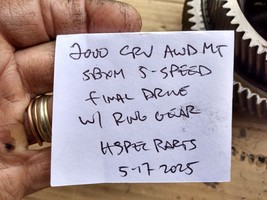 2000 CRV AWD MT
SBXM 5-SPEED
FINAL DRIVE
W/ RING GEAR
HSPEC PARTS
5-17 2025